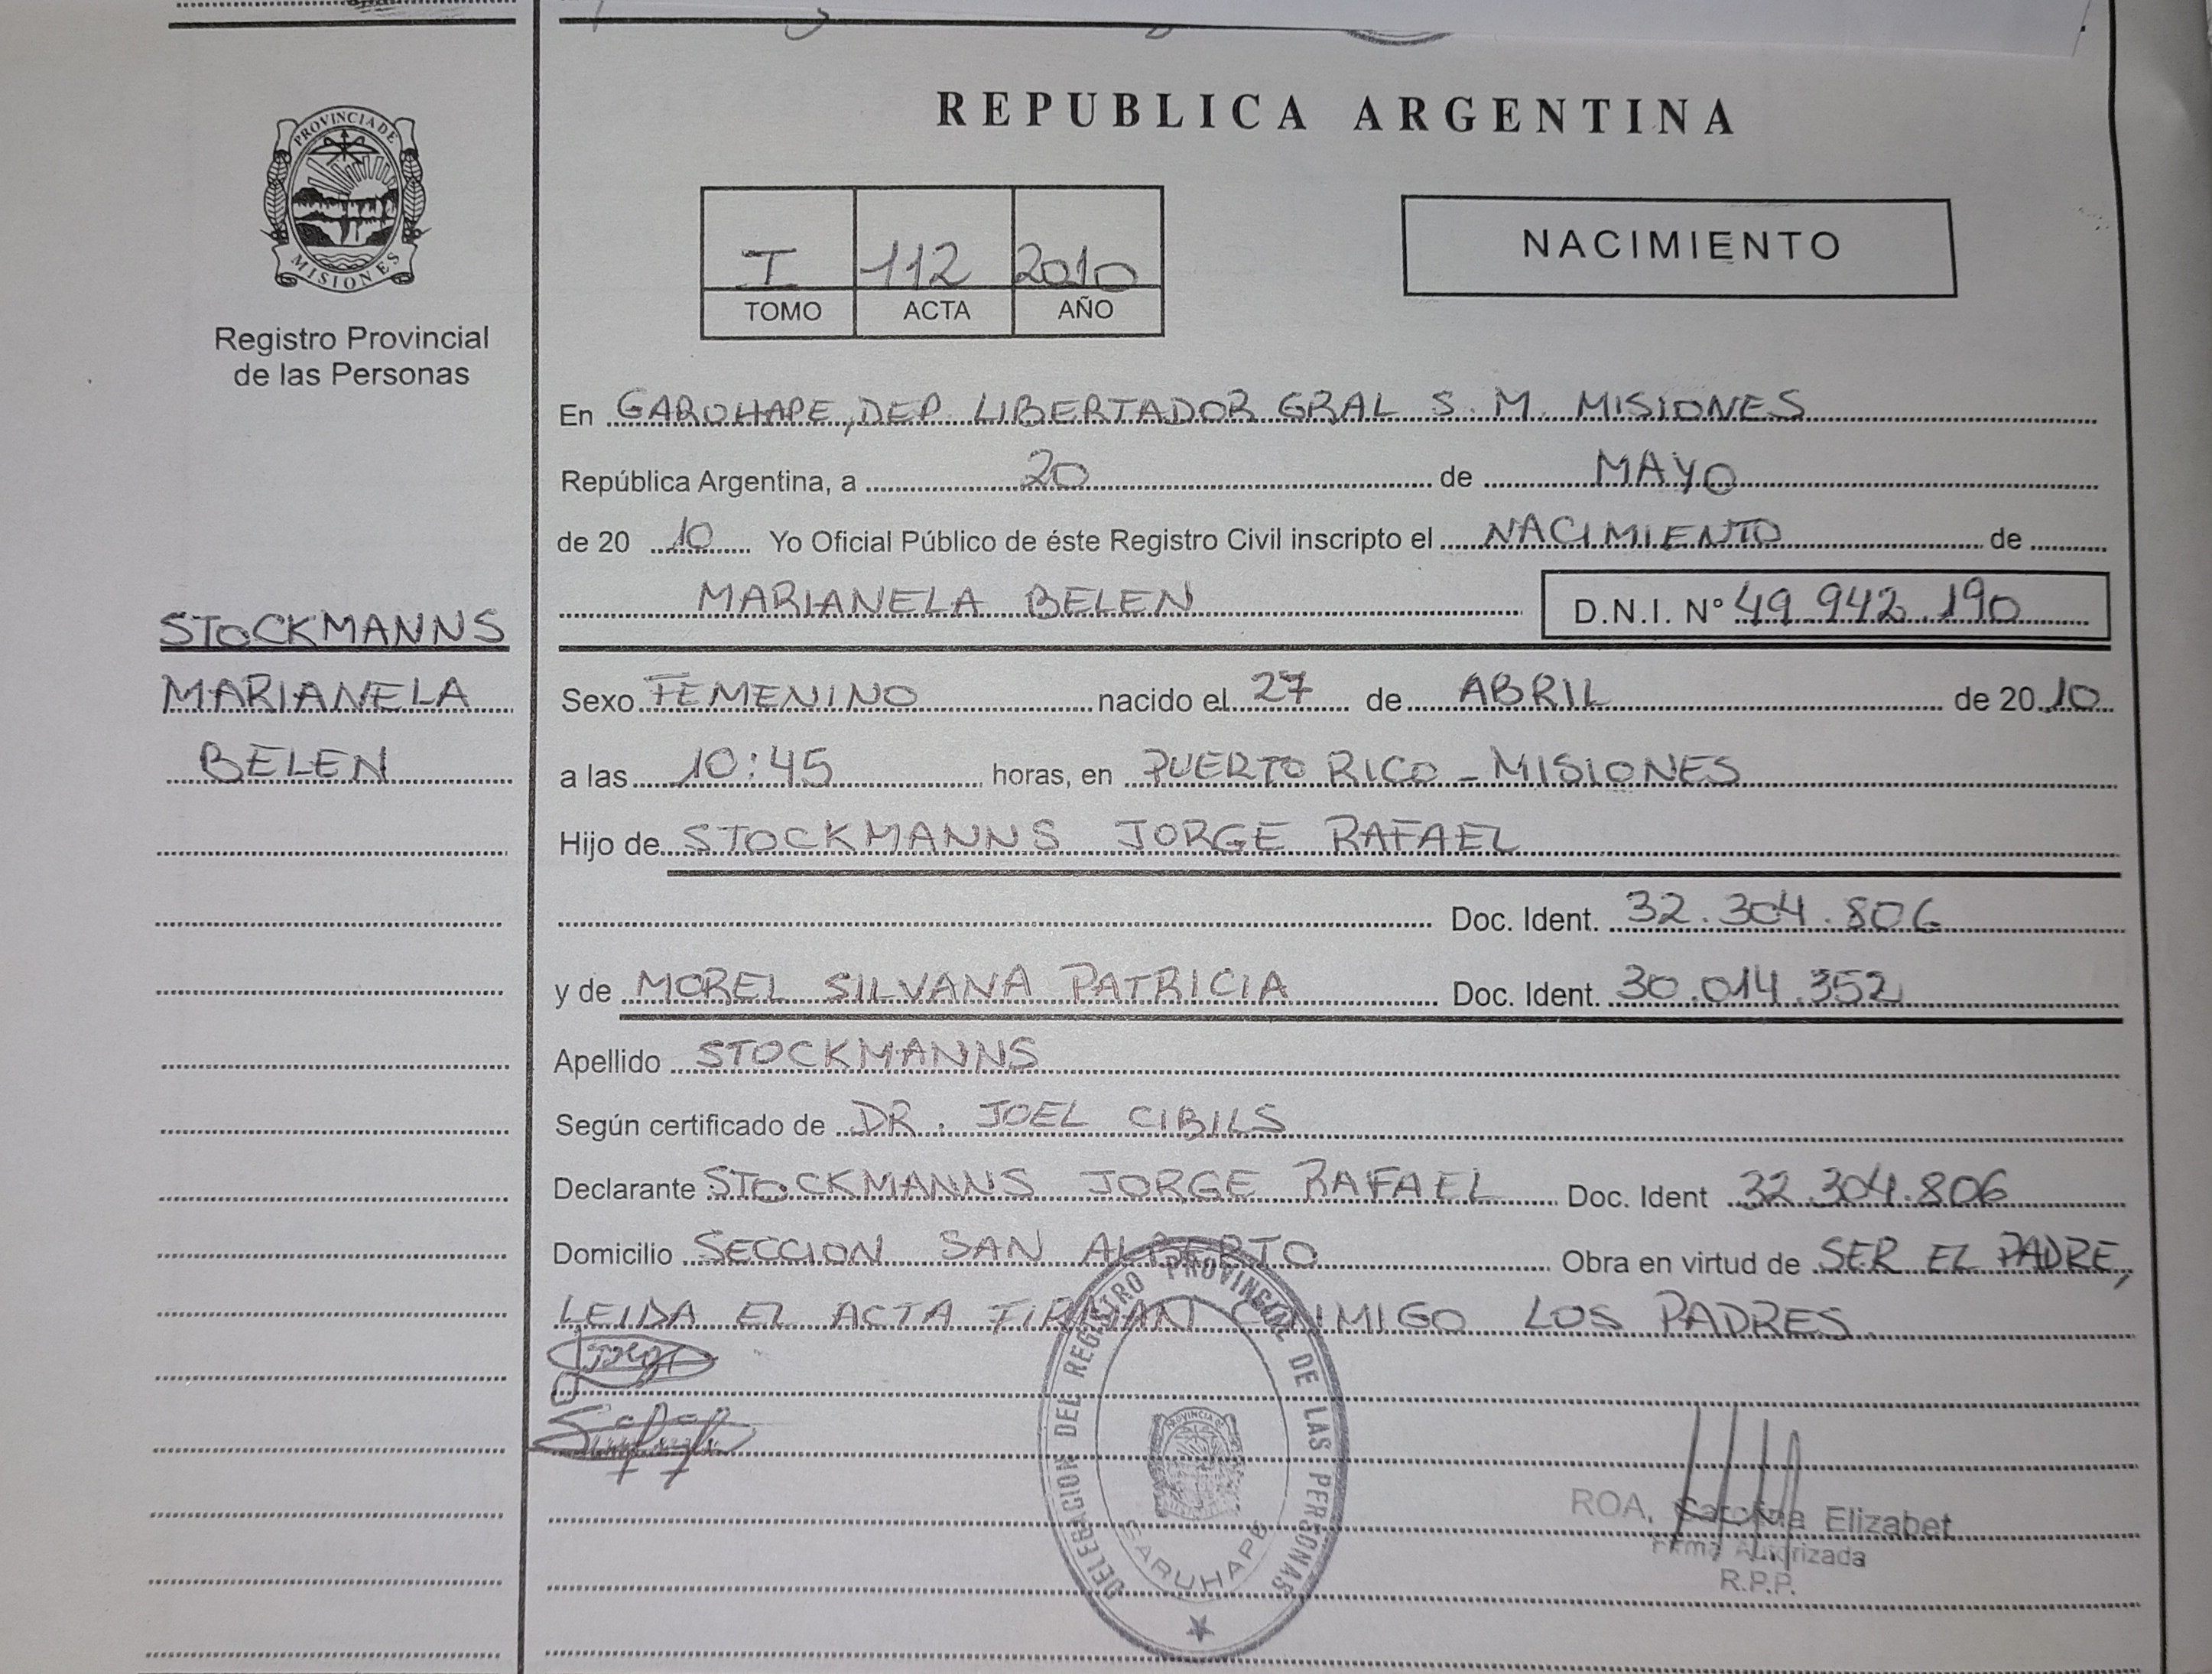 PROVINCIA DE
MISIONES
Registro Provincial
de las Personas
STOCKMANNS
MARIANELA
BELEN
REPUBLICA ARGENTINA
I 112 2010
TOMO ACTA AÑO
NACIMIENTO
En GARUHAPE, DEP. LIBERTADOR GRAL S. M. MISIONES
República Argentina, a 20 de MAYO
de 20 10 Yo Oficial Público de éste Registro Civil inscripto el NACIMIENTO de
MARIANELA BELEN D.N.I. N° 49.942.190
Sexo FEMENINO nacido el 27 de ABRIL de 20 10
a las 10:45 horas, en PUERTO RICO - MISIONES
Hijo de STOCKMANNS JORGE RAFAEL
Doc. Ident. 32.304.806
y de MOREL SILVANA PATRICIA Doc. Ident. 30.014.352
Apellido STOCKMANNS
Según certificado de DR. JOEL CIBILS
Declarante STOCKMANNS JORGE RAFAEL Doc. Ident 32.304.806
Domicilio SECCION SAN ALBERTO Obra en virtud de SER EL PADRE,
LEIDA EL ACTA FIRMAN CONMIGO LOS PADRES.
DELEGACION DEL REGISTRO PROVINCIAL DE LAS PERSONAS
PROVINCIA DE
GARUHAPE
ROA, Carolina Elizabet
Firma Autorizada
R.P.P.